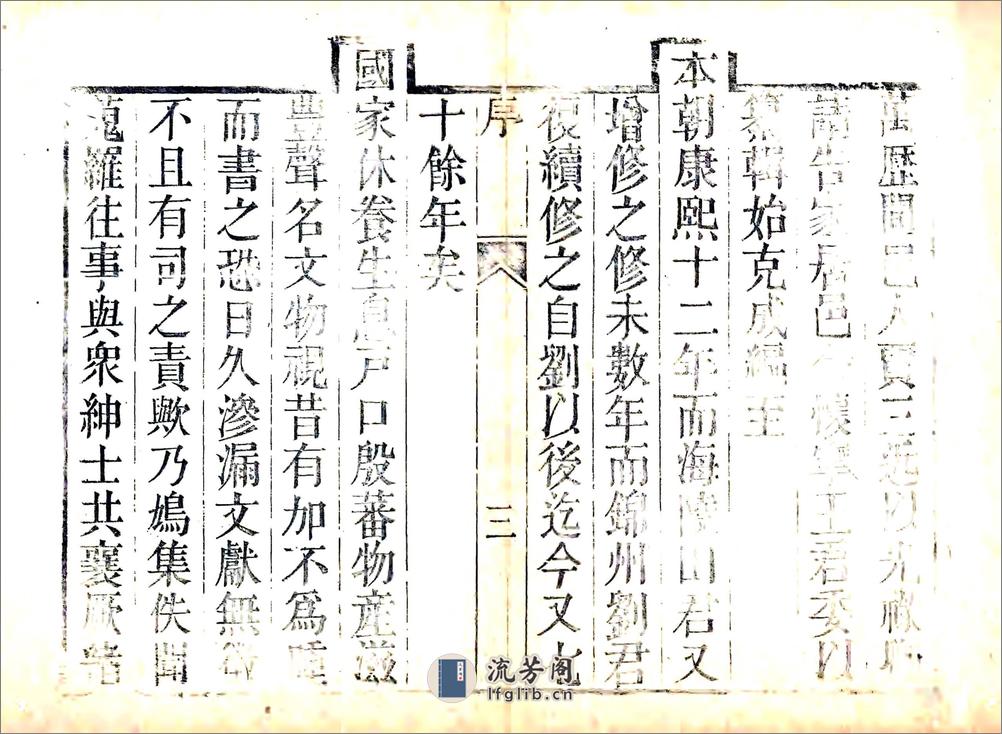 萬歷間邑人賈三近以光祿卿
請告家居邑令懷寧王君委以
纂輯始克成編至
本朝康熙十二年而海陵田君又
增修之修未數年而錦州劉君
復續修之自劉以後迄今又七
序
三
十餘年矣
國家休養生息戶口殷蕃物產滋
豐聲名文物視昔有加不爲
而書之恐日久滲漏文獻無
不且有司之責歟乃鳩集佚聞
蒐羅往事與衆紳士共襄厥
流芳阁
lfglib.cn